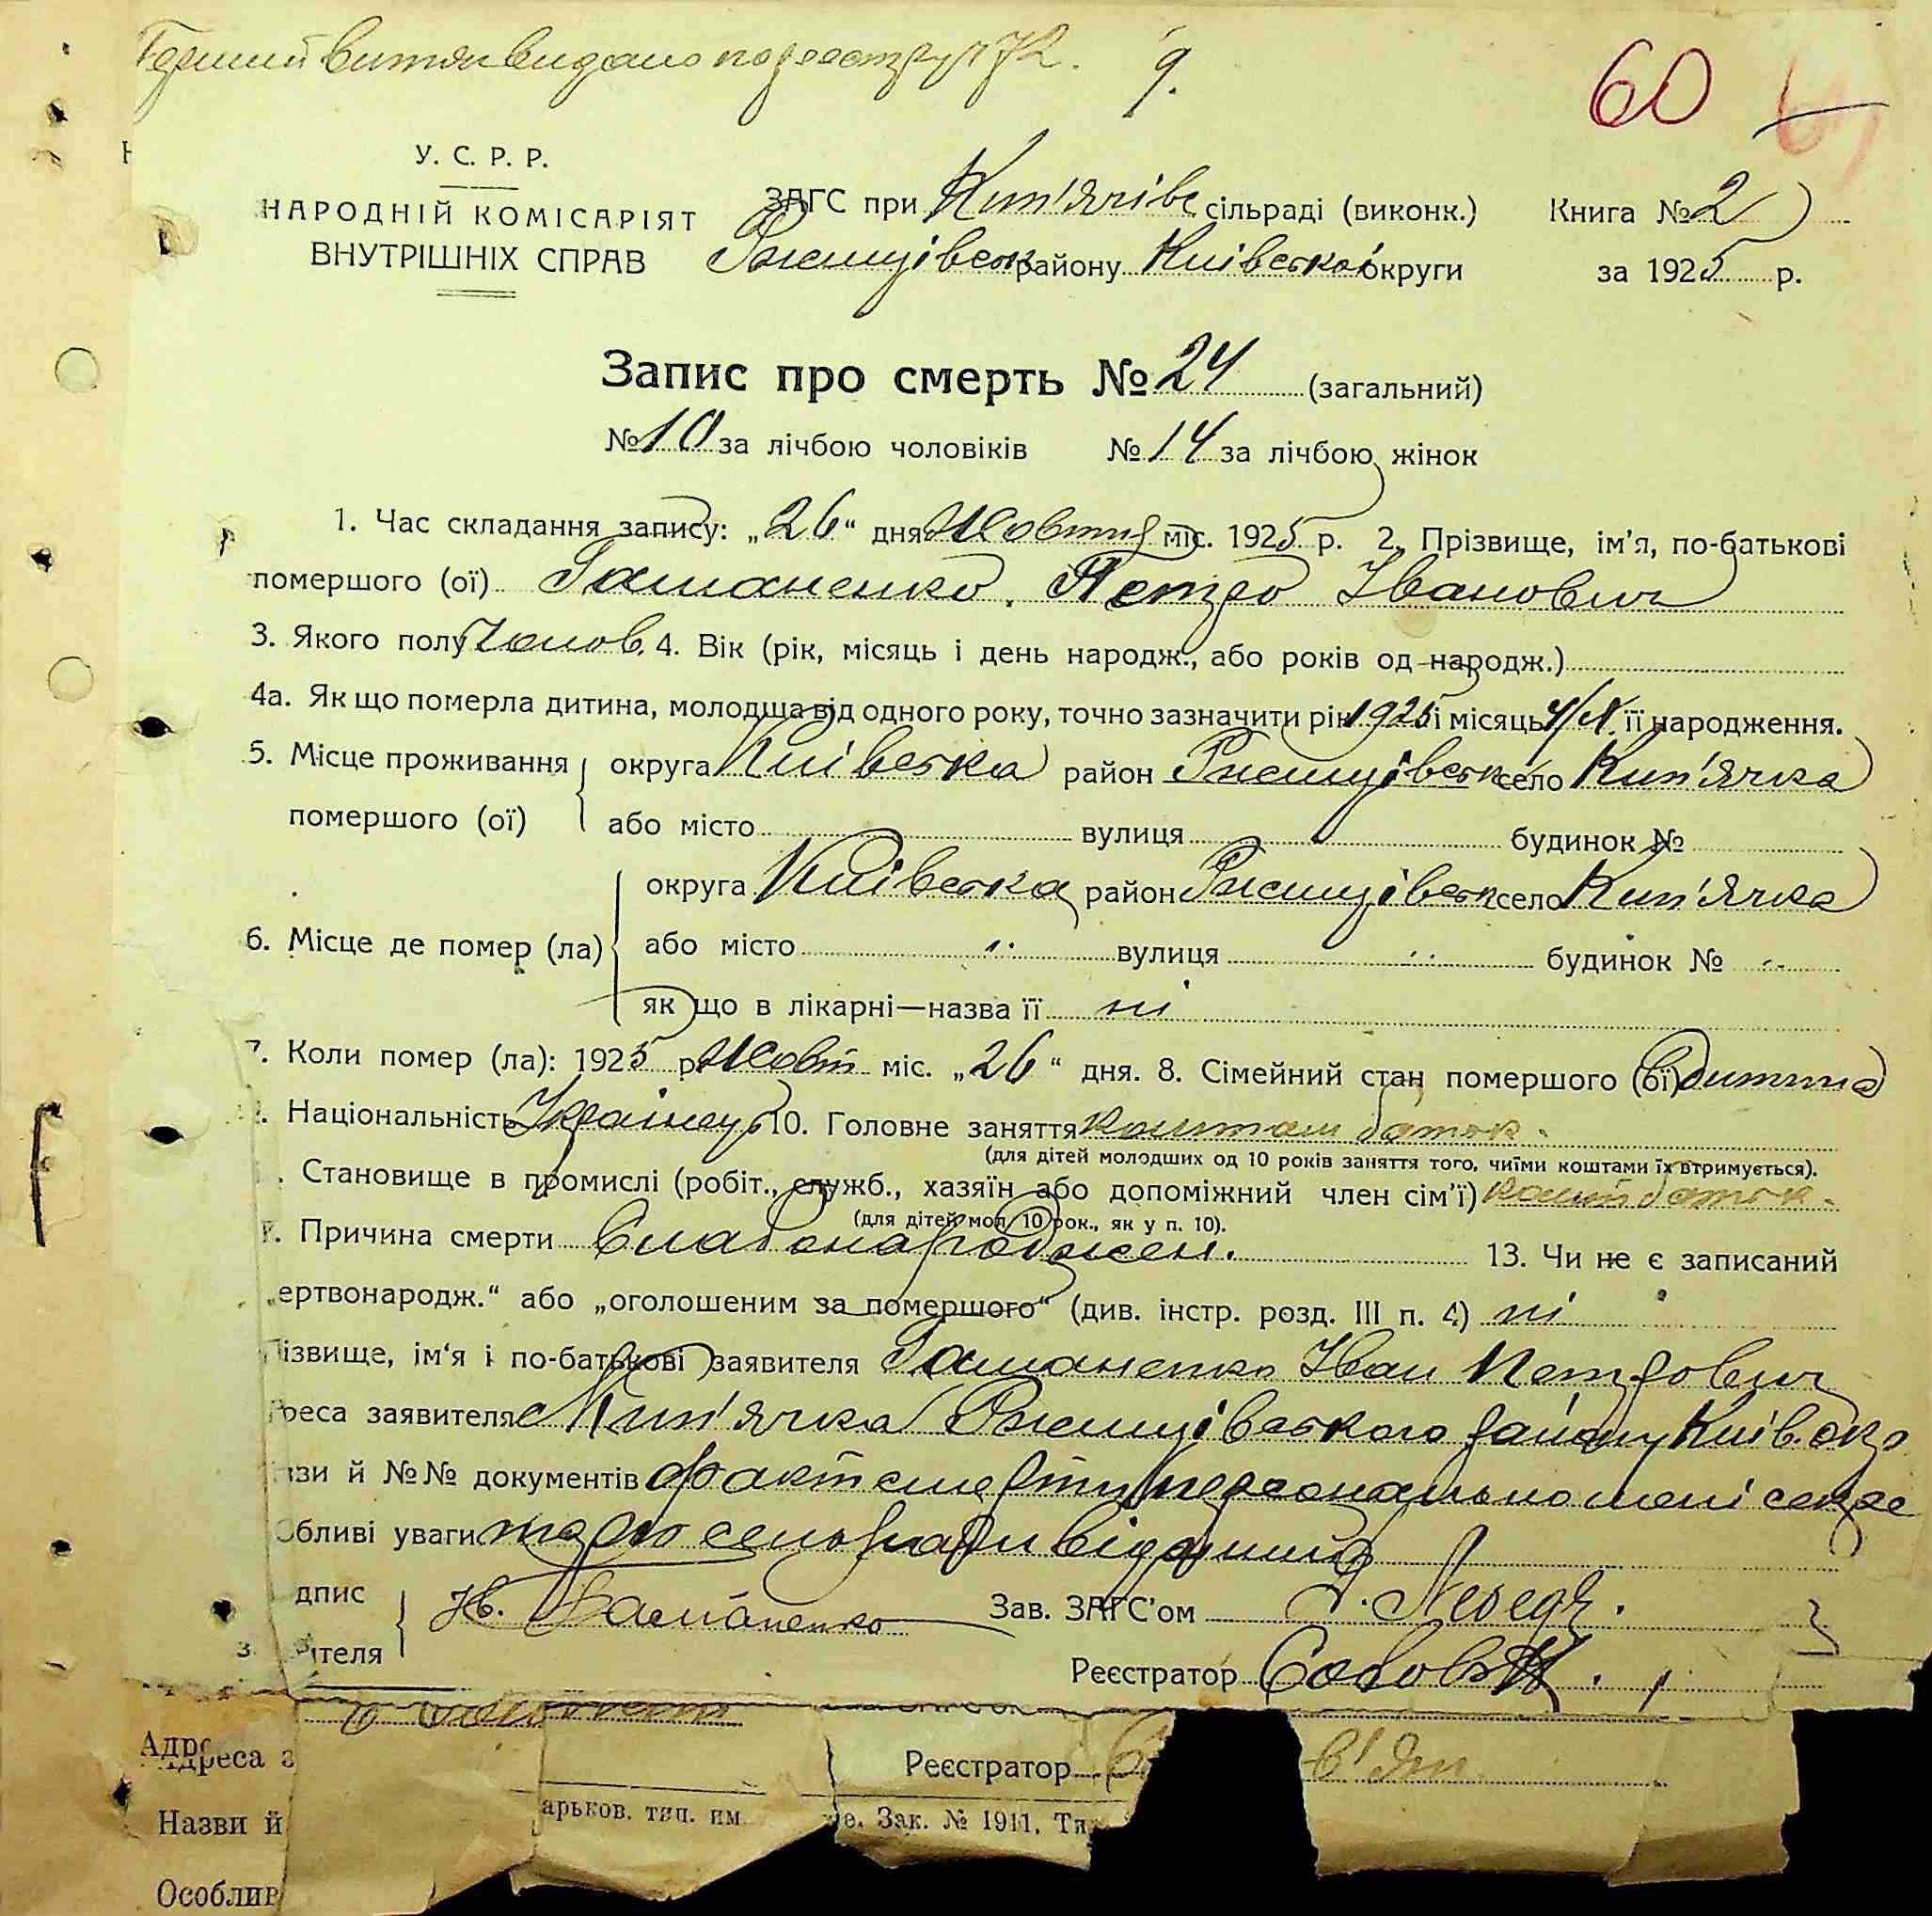 витяг видано по реєстру ч 72. 9.
60
У. С. Р. Р.
НАРОДНІЙ КОМІСАРІЯТ
ВНУТРІШНІХ СПРАВ
ЗАГС при Кип'ячівс сільраді (виконк.)
Ржищівськ району Київської округи
Книга № 2
за 1925 р.
Запис про смерть № 24 (загальний)
№ 10 за лічбою чоловіків № 14 за лічбою жінок
1. Час складання запису: „26“ дня Жовтня міс. 1925 р. 2. Прізвище, ім'я, по-батькові
помершого (ої) Гаманенко Петро Іванович
3. Якого полу Чолов. 4. Вік (рік, місяць і день народж., або років од народж.)
4а. Як що померла дитина, молодща від одного року, точно зазначити рік 1925 і місяць її народження.
5. Місце проживання помершого (ої) округа Київська район Ржищівськ село Кип'ячка
або місто вулиця будинок №
6. Місце де помер (ла) округа Київська район Ржищівськ село Кип'ячка
або місто „ вулиця „ будинок № „
як що в лікарні—назва її ні
7. Коли помер (ла): 1925 р. Жовт міс. „26“ дня. 8. Сімейний стан помершого (ої) дитина
Національність Українець 10. Головне заняття коштам батьк.
(для дітей молодших од 10 років заняття того, чиїми коштами їх втримується).
. Становище в промислі (робіт., служб., хазяїн або допоміжний член сім'ї) кошт батьк.
(для дітей мол. 10 рок., як у п. 10).
Причина смерти Слабонароджен. 13. Чи не є записаний
„ертвонародж.“ або „оголошеним за помершого“ (див. інстр. розд. III п. 4) ні
ізвище, ім'я і по-батькові заявителя Гаманенко Іван Петрович
реса заявителя с Кип'ячка Ржищівського району Київ. окр
ази й №№ документів факт смерти персонально мені секре
обливі уваги тарю сельради відомий
дпис
ителя
Ів. Гаманенко
Зав. ЗАГС'ом Лебедь.
Реєстратор
Адре
Адреса з
Реєстратор
Назви й
арьков. тип. им
е. Зак. № 1911. Ти
Особлив